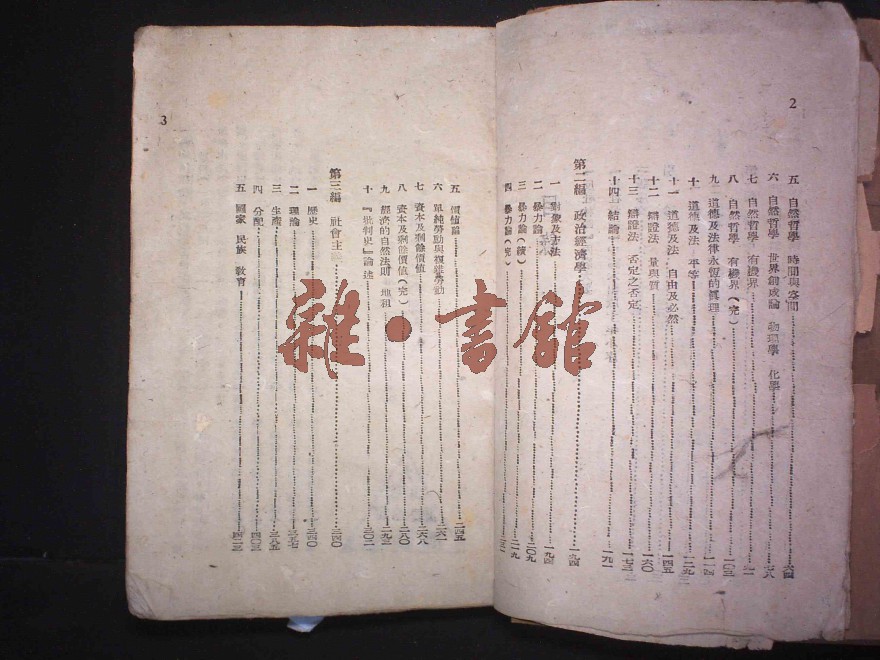 2
五 自然哲學 時間與空間……六四
六 自然哲學 世界創成論 物理學 化學……七八
七 自然哲學 有機界……
八 自然哲學 有機界(完)……一〇三
九 道德及法律永恆的眞理……一一四
十 道德及法 平等……一二九
十一 道德及法 自由及必然……一四五
十二 辯證法 量與質……一六〇
十三 辯證法 否定之否定……一七三
十四 結論……一九一
第二編 政治經濟學……一九四
一 對象及方法……一九四
二 暴力論……二〇九
三 暴力論(續)……二一九
四 暴力論(完)……
3
五 價值論……二四五
六 單純勞動與複雜勞動……二六一
七 資本及剩餘價值……二六八
八 資本及剩餘價值(完)……二八〇
九 經濟的自然法則 地租……二九二
十 『批判史』論述……三〇二
第三編 社會主……三四〇
一 歷史……三四〇
二 理論……三五七
三 生產……三八五
四 分配……四〇三
五 國家 民族 敎育……四二三
雜·書館